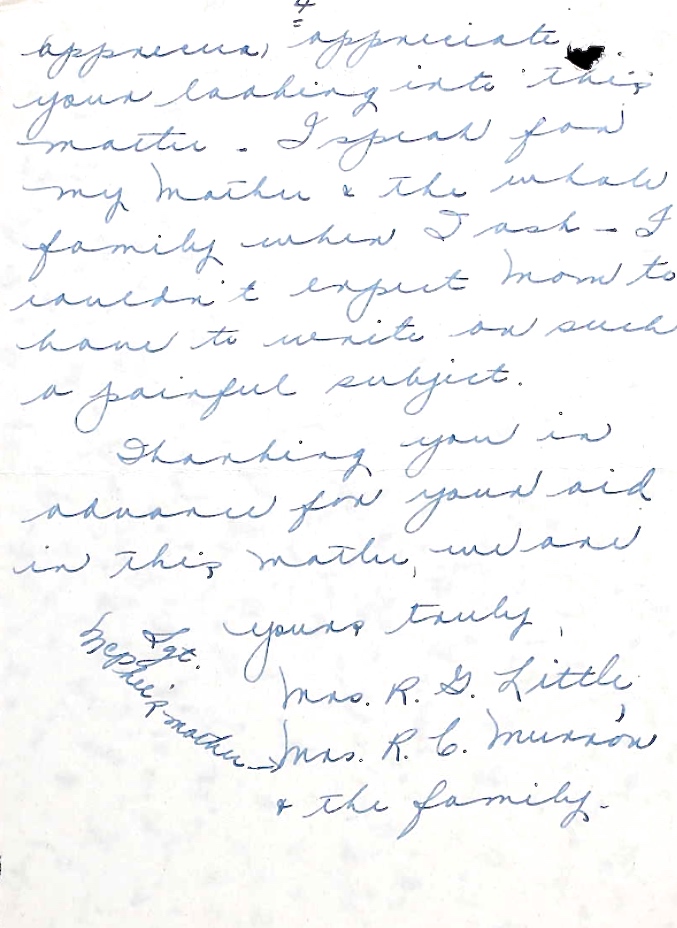 4
apprecia, appreciate
your looking into this
matter. I speak for
my Mother & the whole
family when I ask - I
couldn't expect Mom to
have to write on such
a painful subject.
Thanking you in
advance for your aid
in this matter, we are
yours truly,
Mrs. R. G. Little,
Sgt.
mother →
Mrs. R. C.
& the family.